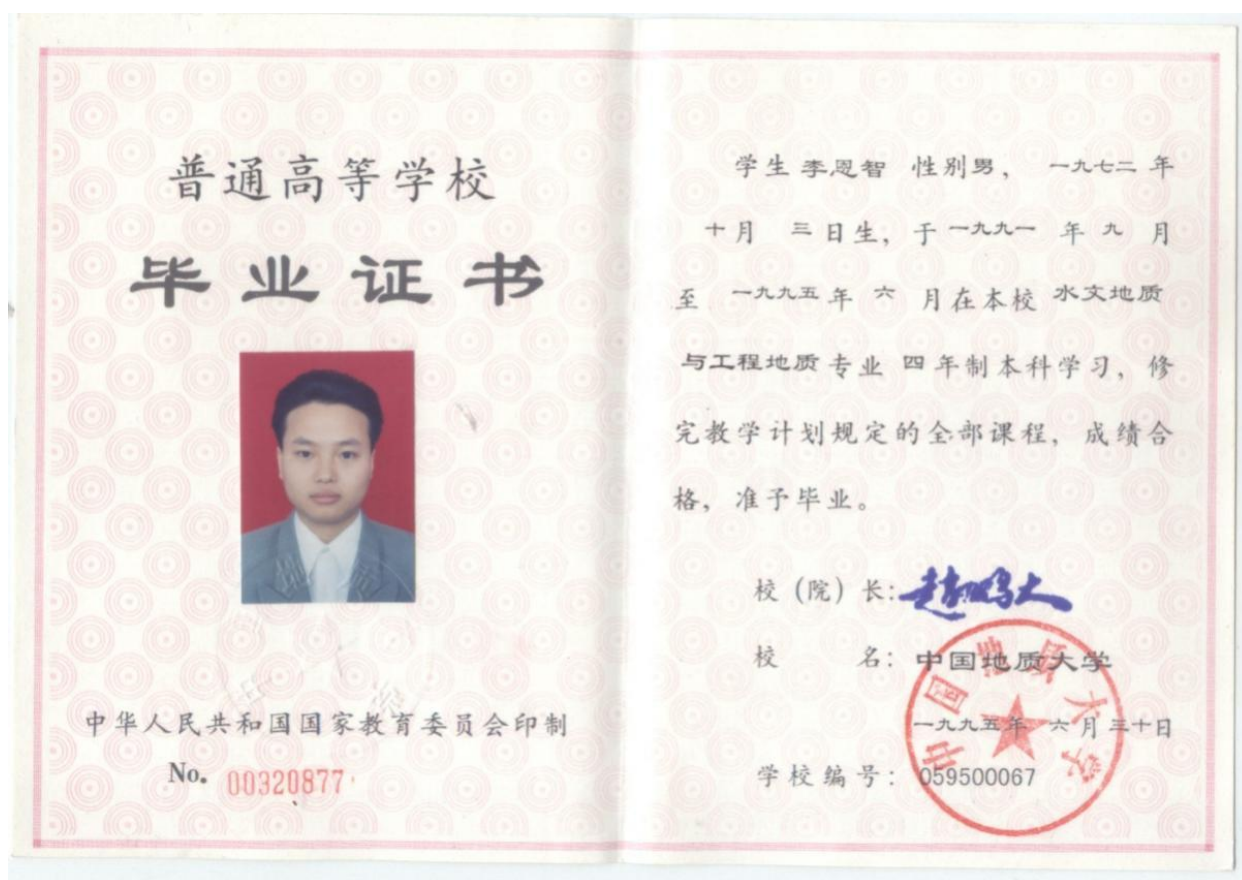 普通高等学校
毕业证书
中华人民共和国国家教育委员会印制
No. 00320877
学生 李恩智 性别男, 一九七二 年
十月 三日生, 于 一九九一 年 九 月
至 一九九五 年 六 月在本校 水文地质
与工程地质 专业 四 年制本科学习, 修
完教学计划规定的全部课程, 成绩合
格, 准予毕业。
校 (院) 长: 赵鹏大
校 名: 中国地质大学
一九九五年 六月三十日
学校编号: 059500067
中国地质大学